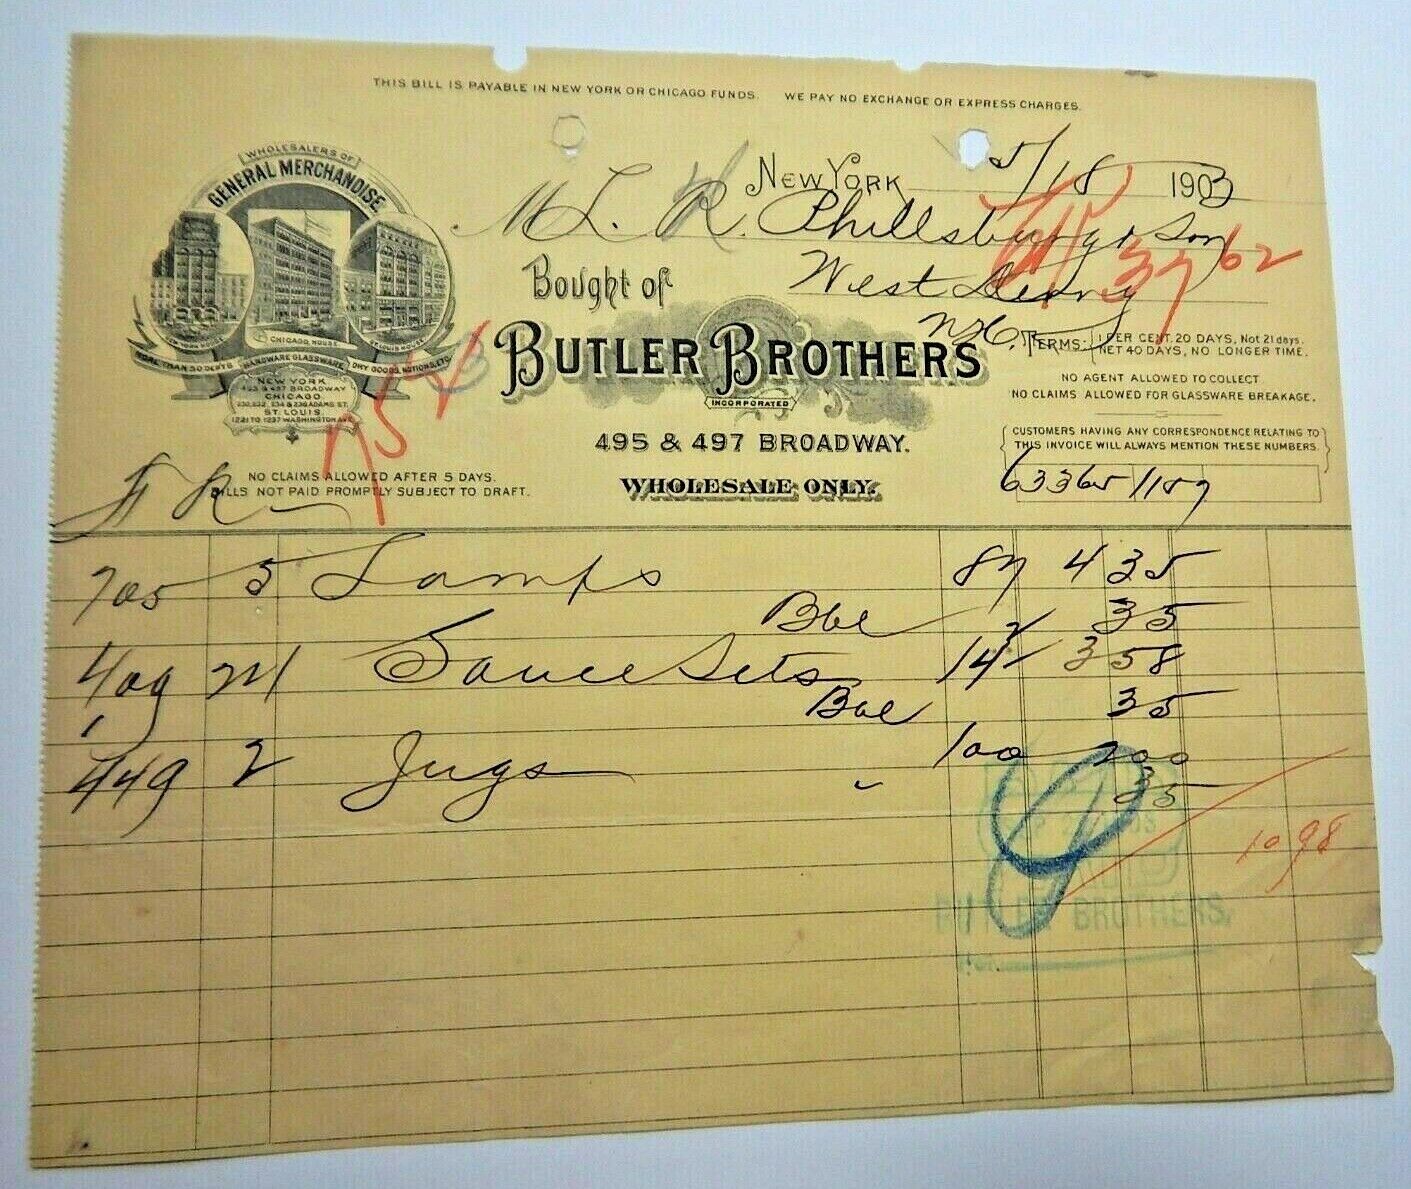 THIS BILL IS PAYABLE IN NEW YORK OR CHICAGO FUNDS. WE PAY NO EXCHANGE OR EXPRESS CHARGES.
WHOLESALERS OF
GENERAL MERCHANDISE.
NEW YORK HOUSE
CHICAGO HOUSE
ST. LOUIS HOUSE
HARDWARE GLASSWARE DRY GOODS, NOTIONS, ETC.
NEW YORK
495 & 497 BROADWAY
CHICAGO
230, 232, 234 & 236 ADAMS ST.
ST. LOUIS
1221 TO 1237 WASHINGTON AVE.
NEW YORK 5/18 1903
M L. R. Phillsbury & Son
37 62
West Derry
N.H.
Bought of
BUTLER BROTHERS
INCORPORATED
495 & 497 BROADWAY.
WHOLESALE ONLY.
TERMS: 1 PER CENT. 20 DAYS, Not 21 days.
NET 40 DAYS, NO LONGER TIME.
NO AGENT ALLOWED TO COLLECT
NO CLAIMS ALLOWED FOR GLASSWARE BREAKAGE.
CUSTOMERS HAVING ANY CORRESPONDENCE RELATING TO
THIS INVOICE WILL ALWAYS MENTION THESE NUMBERS.
NO CLAIMS ALLOWED AFTER 5 DAYS.
BILLS NOT PAID PROMPTLY SUBJECT TO DRAFT.
705 5 Lamps 87 4 35
Bbl 35
409 24 Sauce Sets 14 3 58
Bbl 35
449 2 Jugs 100 200
" 35
10 98
BUTLER BROTHERS.